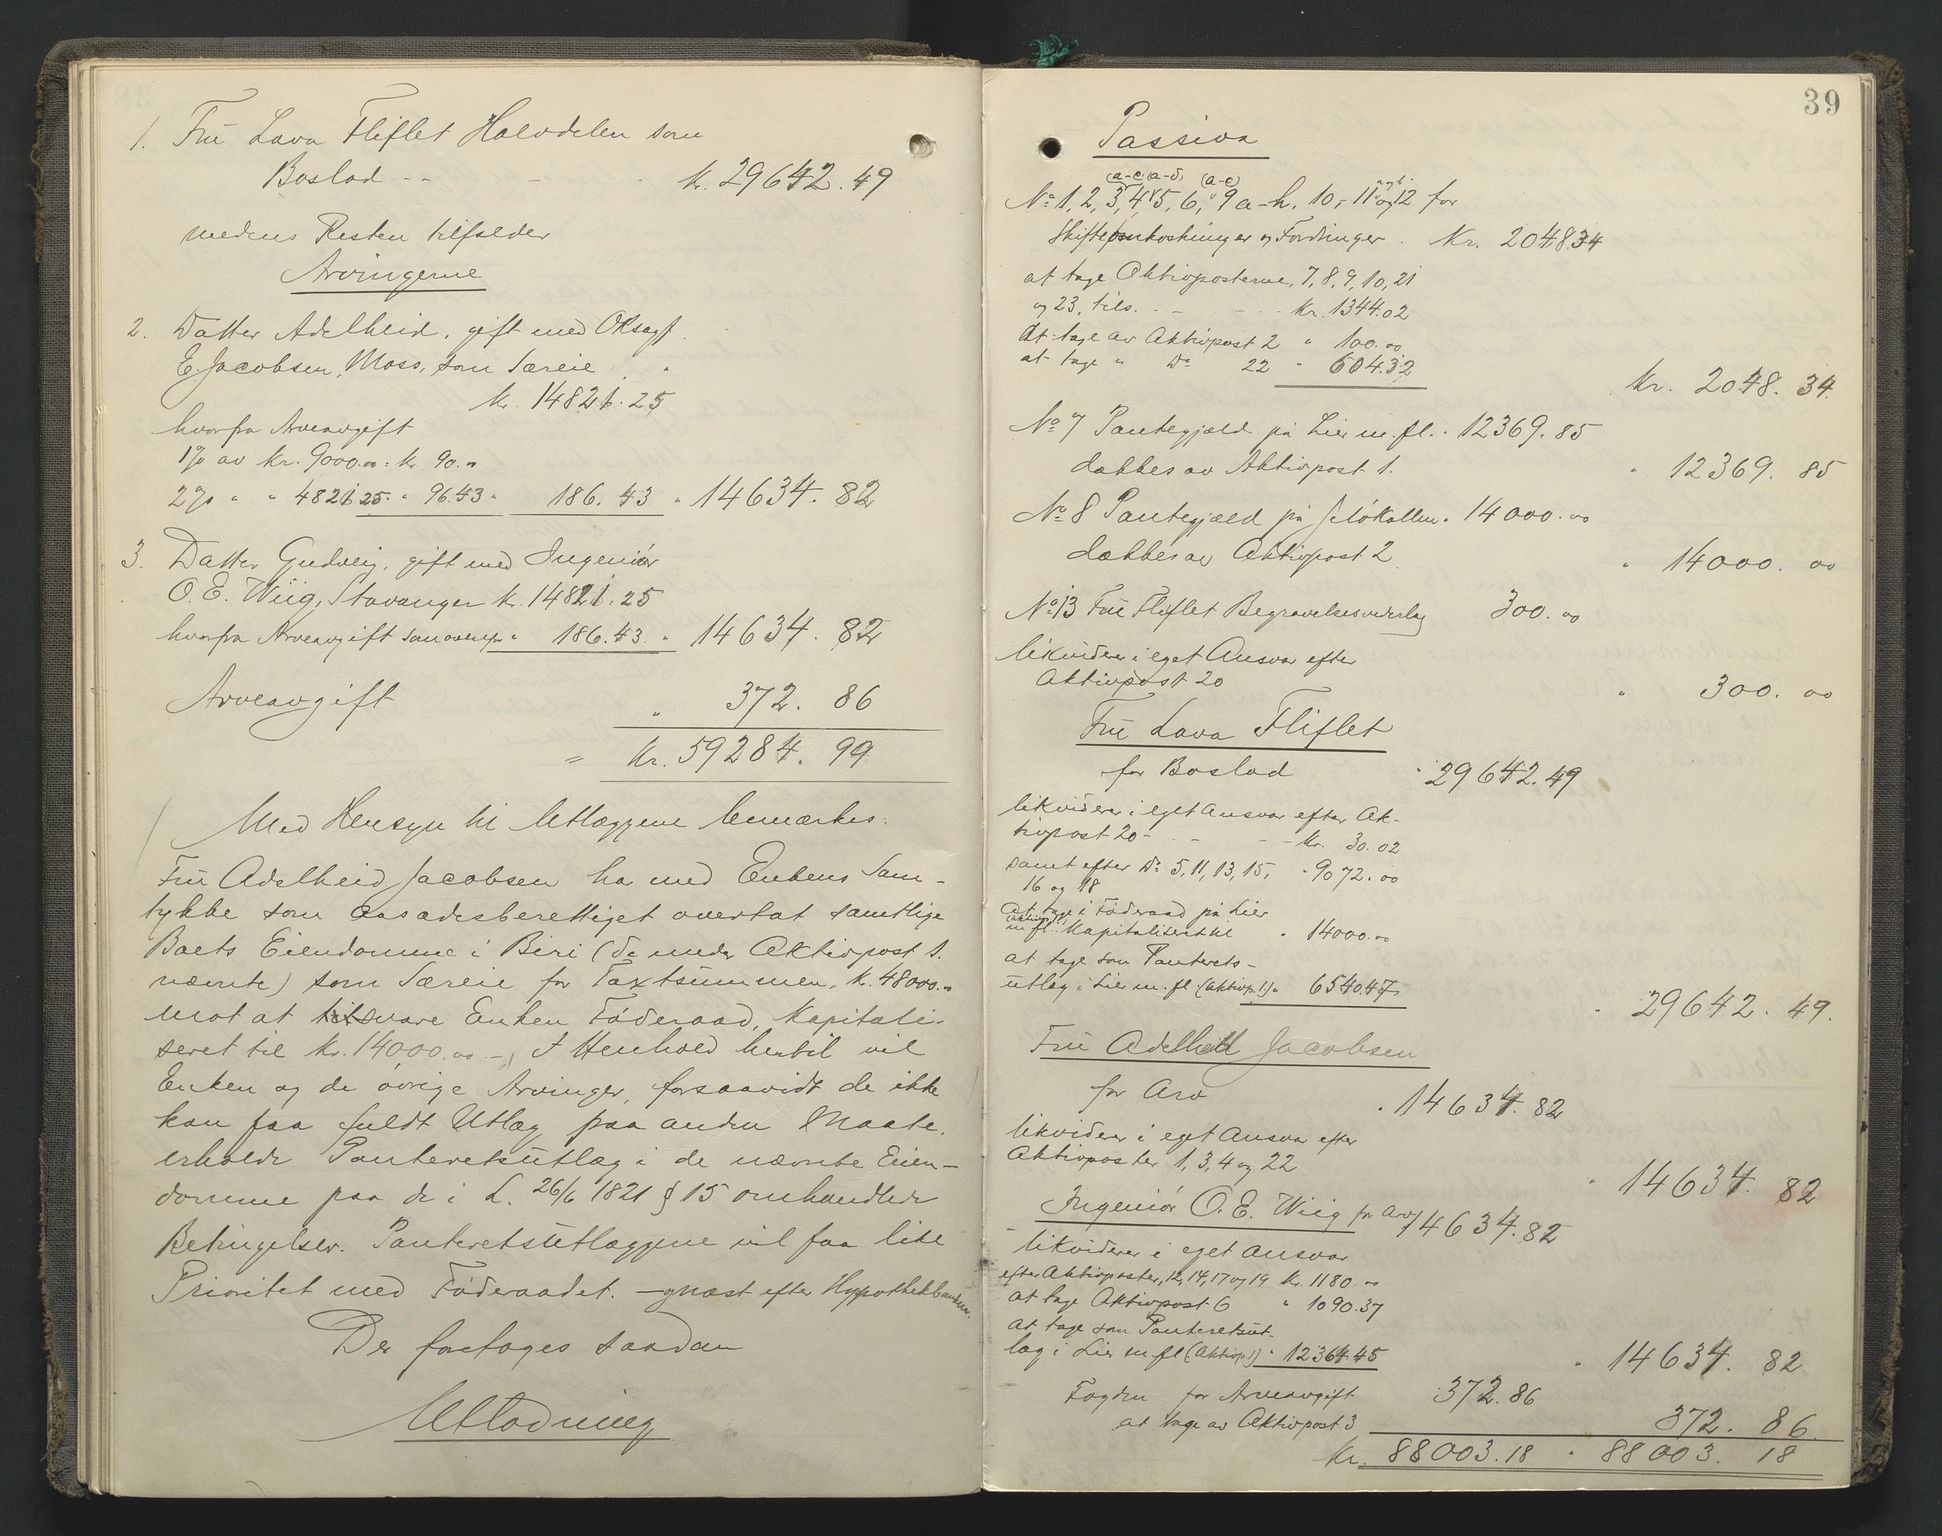 1. Fru Lava Fliflet Halvdelen som
Boslod -- - - kr. 29642.49
medens Resten tilfalder
Arvingerne
2. Datter Adelheid, gift med ORsagf.
E. Jacobsen, Moss, som Særeie
kr. 14821.25
hvorfra Arveavgift
1% av kr. 9000.00: kr. 90.00
2% " " 4821.25 " 96.43 " 186.43 " 14634.82
3. Datter Gudveig, gift med Ingeniör
O. E. Wiig, Stavanger kr. 14821.25
hvorfra Arveavgift som ovenf. " 186.43 " 14634.82
Arveavgift " 372.86
= Kr. 59284.99
Med Hensyn til Utlæggene bemærkes:
Fru Adelheid Jacobsen har med Enkens Sam-
tykke som aasædesberettiget overtat samtlige
Boets Eiendomme i Biri (de under Aktivpost 1.
nævnte) som Særeie for Taxtsummen, kr. 48000.00
mot at tilsvare Enken Föderaad, kapitali-
seret til kr. 14000.00 -, I Henhold hertil vil
Enken og de övrige Arvinger, forsaavidt de ikke
kan faa fuldt Utlæg paa anden Maate,
erholde Panteretsutlæg i de nævnte Eien-
domme paa de i L. 26/6 1821 § 15 omhandlede
Betingelser. Panteretsutlæggene vil faa like
Prioritet med Föderaadet. - næst efter Hypothekbanken.
Der foretages saadan
Utlodning
39
Passiva
(a-c) (a-d) (a-e)
No 1, 2, 3, 4, 5, 6, 9 a-h, 10, 11 og 12 for
Skifteomkostninger og Fordringer . Kr. 2048.34
at tage Aktivposterne, 7, 8, 9, 10, 21
og 23, tils. - - - kr. 1344.02
At tage av Aktivpost 2 " 100.00
at tage " Do 22 " 604.32
kr. 2048.34.
No 7 Pantegjæld på Lier m.fl. . 12369.85
dækkes av Aktivpost 1. " 12369.85
No 8 Pantegjæld på Jelökollen . 14000.00
dækkes av Aktivpost 2. " 14000.00
No 13 Fru Fliflet Begravelsesvederlag 300.00
likviderer i eget Ansvar efter
Aktivpost 20 " 300.00
Fru Lava Fliflet
for Boslod " 29642.49
likviderer i eget Ansvar efter Ak-
tivpost 20 - - - kr. 30.02
samt efter Do 5, 11, 13, 15, " 9072.00
16 og 18
at tage i Föderaad på Lier
m.fl. (aktivp. 1) kapitaliseret til " 14000.00
at tage som Panterets-
utlæg i Lier m.fl. (aktivp. 1) " 6540.47
" 29642.49.
Fru Adelheid Jacobsen
for Arv " 14634.82
likviderer i eget Ansvar efter
Aktivposter 1, 3, 4 og 22 " 14634.82
Ingeniör O. E. Wiig for Arv 14634.82
likviderer i eget Ansvar
efter Aktivposter, 12, 14, 17 og 19 kr. 1180.00
at tage Aktivpost 6 " 1090.37
at tage som Panteretsut-
læg i Lier m.fl. (Aktivp. 1) " 12364.45
" 14634.82
Fogden for Arveavgift 372.86
at tage av Aktivpost 3 372.86
kr. 88003.18 " 88003.18